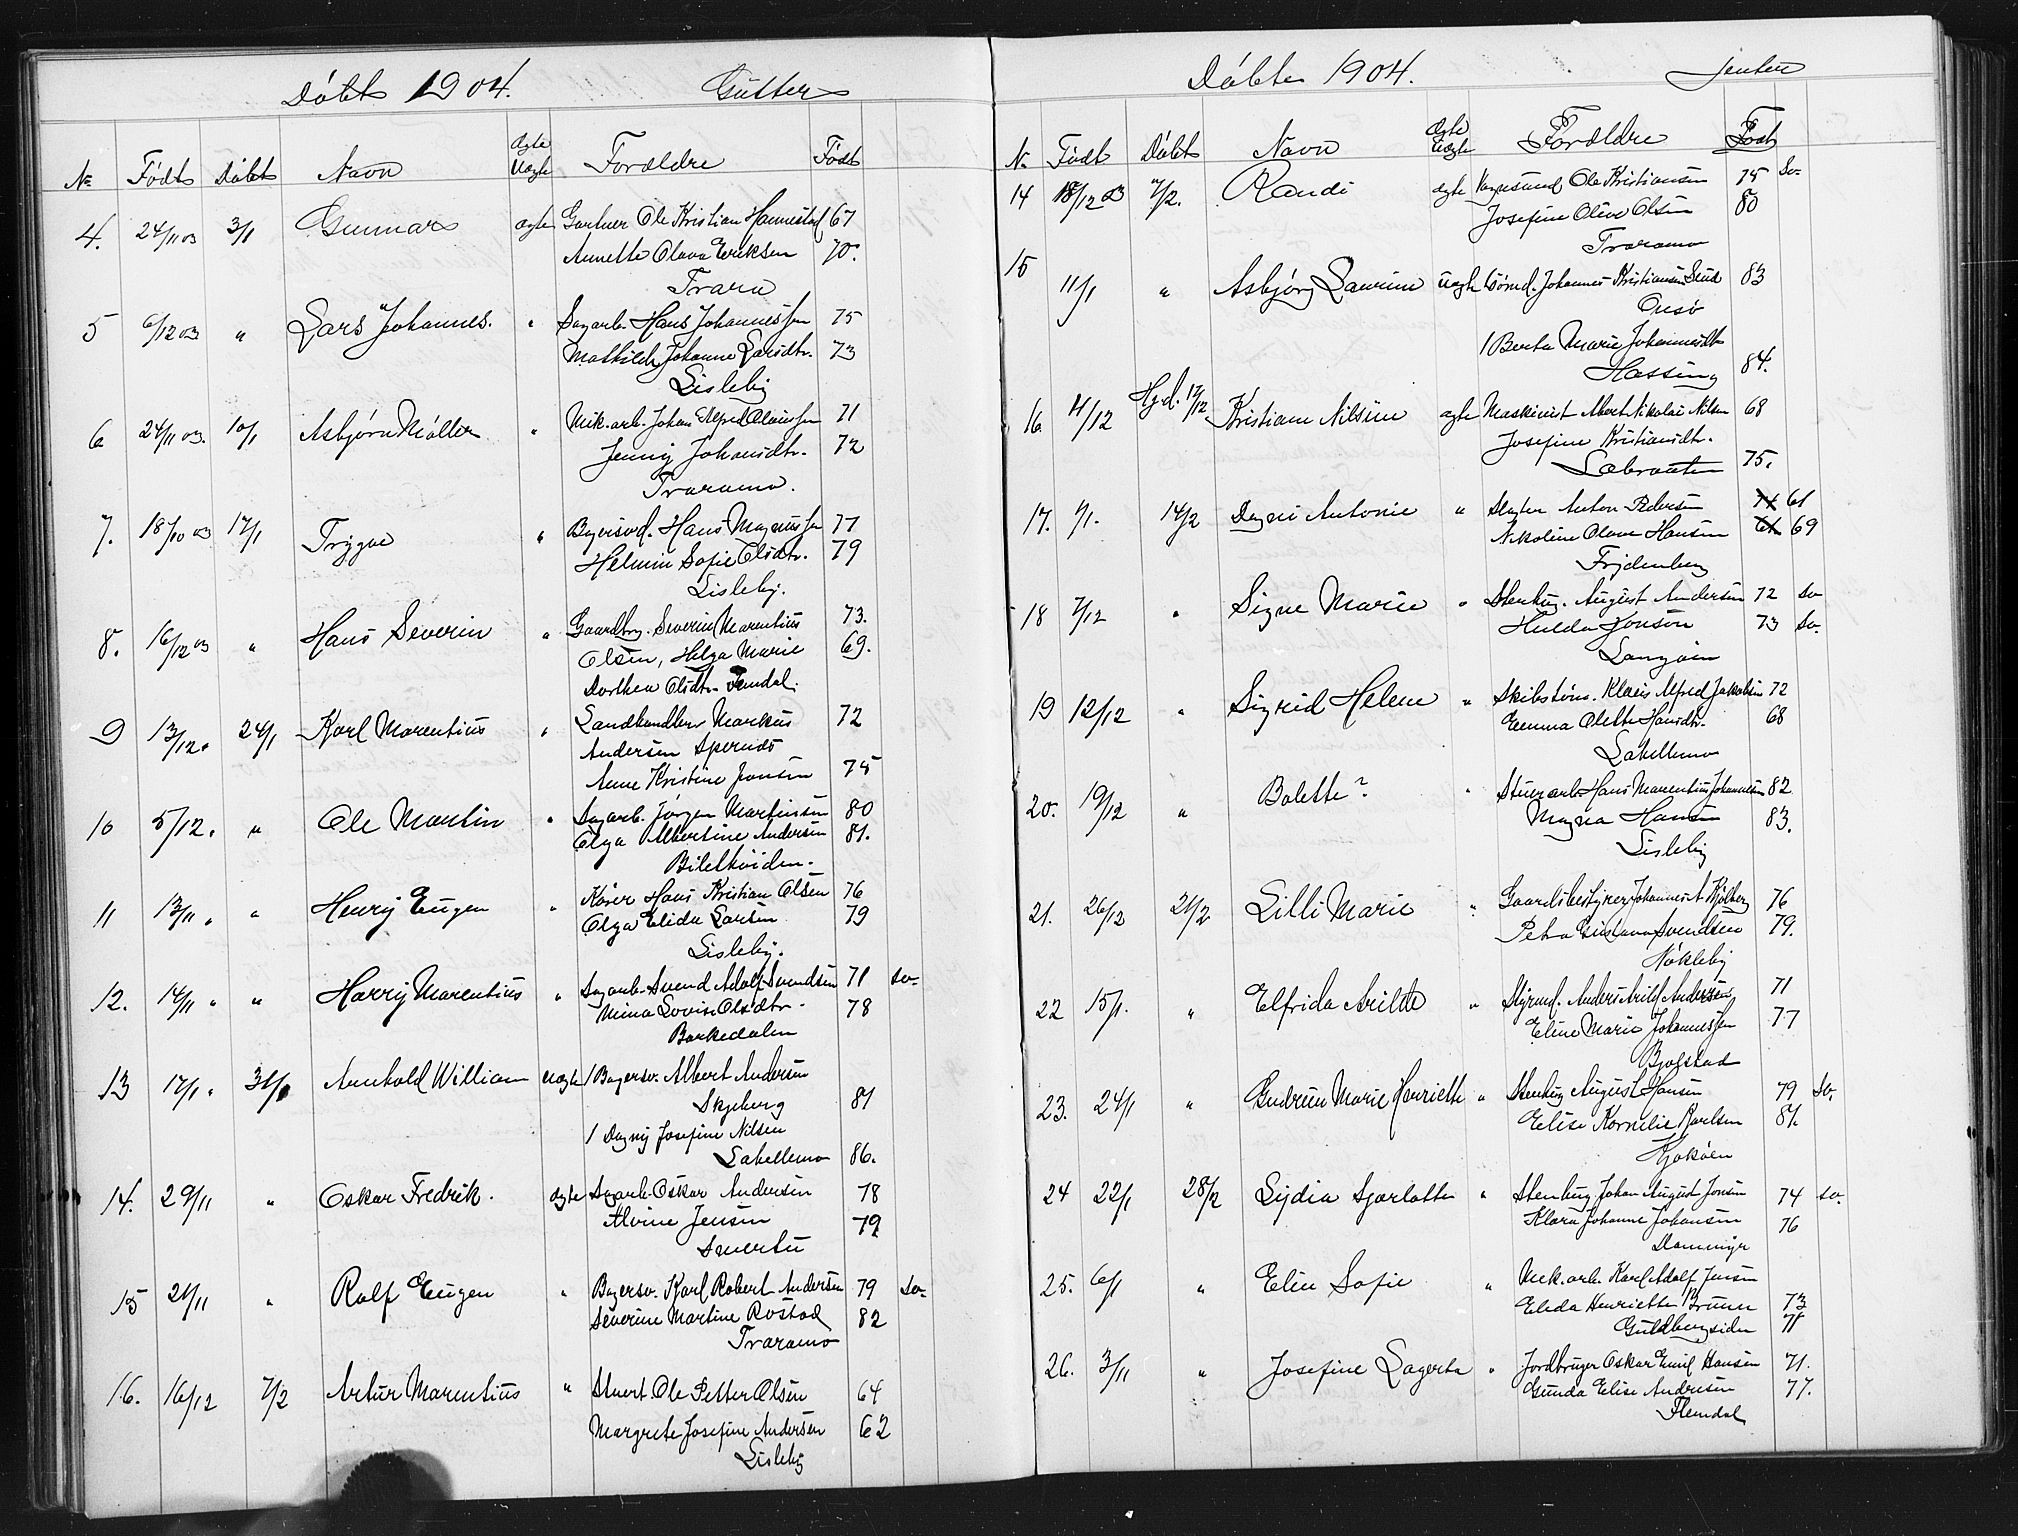 Døbte 1904. Gutter
No Født Døbt Navn Ægte Uægte Forældre Født
4. 24/11 03 3/1 Gunnar ægte Gartner Ole Kristian Hannestad 67
Annette Olava Eriksen 70.
Trara
5 6/12 03 " Lars Johannes. " Sagarb. Hans Johannessen 75
Mathilde Johanne Larsdtr. 73
Lisleby
6 24/11 03. 10/1 Asbjørn Møller " Mek. arb. Johan Alfred Olaussen 71
Jenny Johansdtr. 72
Traramo.
7. 18/10 03 17/1 Trygve " Bagersvd. Hans Magnussen 77
Helmin Sofie Olsdtr. 79
Lisleby.
8. 16/12 03 " Hans Severin " Gaardbrg. Severin Marentius 73.
Olsen, Helga Marie 69.
Dorthea Olsdtr.
9 13/12 " 24/1 Karl Marentius " Landhandler Markus 72
Andersen
Anne Kristine Jonsen 75
10 5/12. " Ole Martin " Sagarb. Jørgen Martinsen 80
Olga Albertine Andersen 81.
11 13/11 " " Henry Eugen " Kører Hans Kristian Olsen 76
Olga Elida Larsen 79
Lisleby.
12. 14/11 " " Harry Marentius " Sagarb. Svend Adolf Svendsen 71 Sv.
Mina Lovise Olsdtr. 78
Barkedalen
13 17/1 " 31/1 Arnhold William uægte 1 Bagersv. Albert Andersen
Skjeberg 81
1 Dagny Josefine Nilsen
Labellemo 86.
14. 29/11 " Oskar Fredrik. ægte Sagarb. Oskar Andersen 78
Alvine Jensen 79
Smertu
15 21/11 " Rolf Eugen " Bagersv. Karl Robert Andersen 79 Sv.
Severine Martine Rostad 82
Traramo
16. 16/12 7/2 Artur Marentius " Stuert Ole Petter Olsen 64
Margrete Josefine Andersen 62
Lisleby
Døbte 1904. Jenter
No Født Døbt Navn Ægte Uægte Forældre Født
14 18/12 03 7/2. Randi ægte Ole Kristiansen 75 Sv.
Josefine Olive Olsen 80
Traramo
15 11/1 " Asbjørg Laurine uægte 1 Sømd. Johannes Kristiansen 83
Onsø
1 Berta Marie Johannesdtr.
Hassing 84.
16 4/12 Hjd. 17/12 Kristiane Nilsine ægte Maskinist Albert Nikolai Nilsen 68
Josefine Kristiansdtr.
75.
17. 1/1. 14/2 Dagni Antonie " Slagter Anton Pedersen 61
Nikoline Olava Hansen 69
Frydenberg
18 7/12 " Signe Marie " Stenhug. August Andersen 72 Sv
Hulda Jonson 73 Sv.
Langøen
19 12/12 " Sigrid Helene " Skibstøm. Klaus Alfred Jakobsen 72
Emma Olette Hansdtr. 68
Labellemo
20. 19/12 " Bolette? " Stuerarb. Hans Marentius Johannesen 82
Magna Hansen 83.
Lisleby
21. 26/12 21/2 Lilli Marie " Gaardsbestyrer Johannes A. Kjølberg 76
Petra Gustava Svendsen 79.
Nøkleby
22 15/1. " Elfrida Arilde " Styrmd. Anders Arild Andersen 71
Eline Marie Johannessen 77
Bjølstad
23. 24/1 " Gudrun Marie Henriette " Stenhug August Hansen 79 Sv.
Elise Kornelie Karlsen 81.
Kjøkøen
24 22/1 28/2 Lydia Sjarlotte " Stenhug Johan August Jonsen 74 Sv.
Klara Johanne Johansen 76
Dammyr
25. 6/1 " Elin Sofie " Mek. arb. Karl Adolf Jensen
Elida Henriette Bruun 73
Guldbergsiden 71
26. 3/11 " Josefine Lagerta " Jordbruger Oskar Emil Hansen 71.
Gunda Elise Andresen 77.